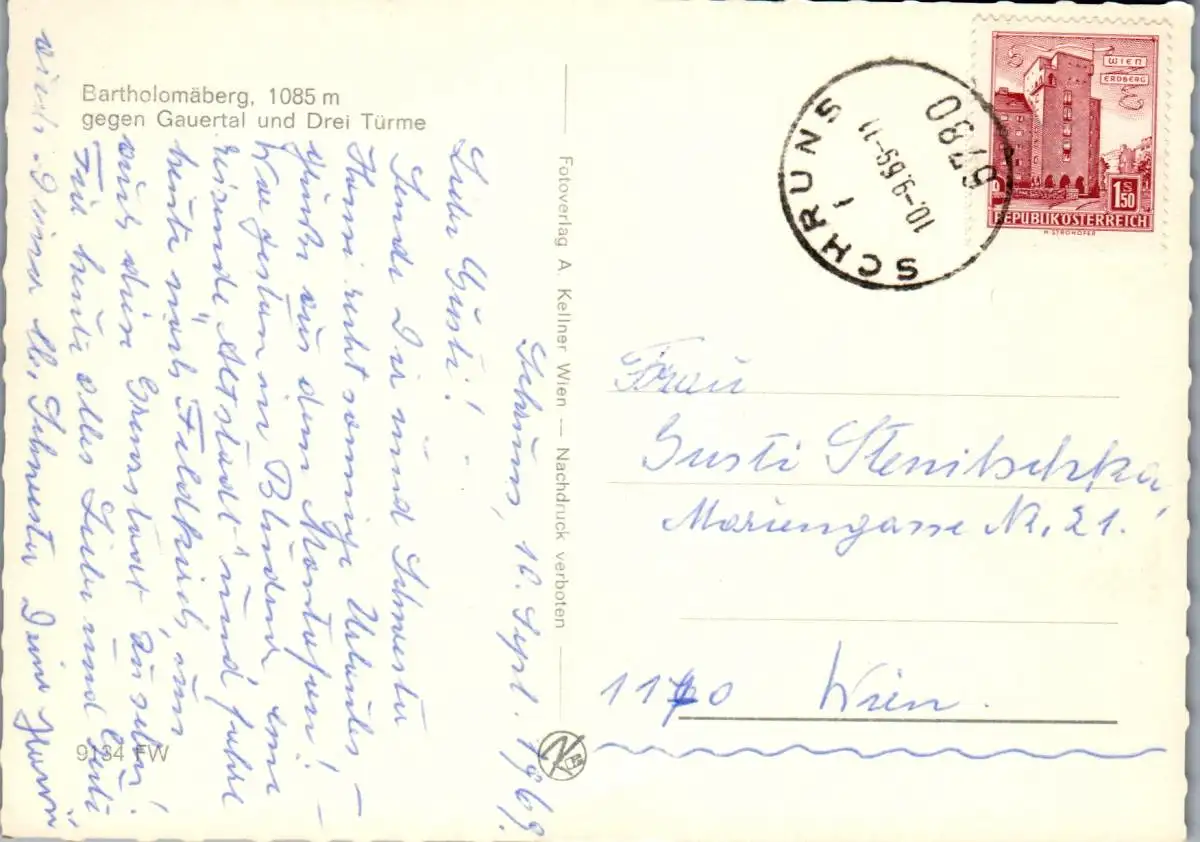 Bartholomäberg, 1085 m
gegen Gauertal und Drei Türme
Schruns, 10. Sept. 1969.
Liebe Gusti!
Sende Dir und Schwester
Hanni recht sonnige Urlaubs-
grüße aus dem Montafon! -
War gestern in Bludenz, eine
reizende Altstadt und fahre
heute nach Feldkirch, um
auch diese Grenzstadt anzusehen!
Für heute alles Liebe und Gute
auch Deiner lb. Schwester Deine
9134 FW
Fotoverlag A. Kellner Wien — Nachdruck verboten
SCHRUNS
1
10.-9.69-11
6780
WIEN
ERDBERG
S
1.50
REPUBLIK ÖSTERREICH
H. STROHOFER
Frau
Gusti Stenitschka
Mariengasse Nr. 21.
1170 Wien.